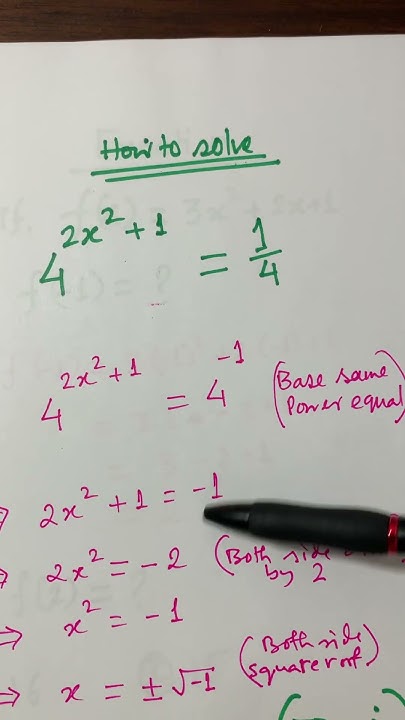 How to solve
4^{2x^2+1} = 1/4
4^{2x^2+1} = 4^{-1} (Base same
Power equal
2x^2 + 1 = -1
⇒ 2x^2 = -2 (Both side
by 2
⇒ x^2 = -1
⇒ x = ±√-1 (Both side
square root)